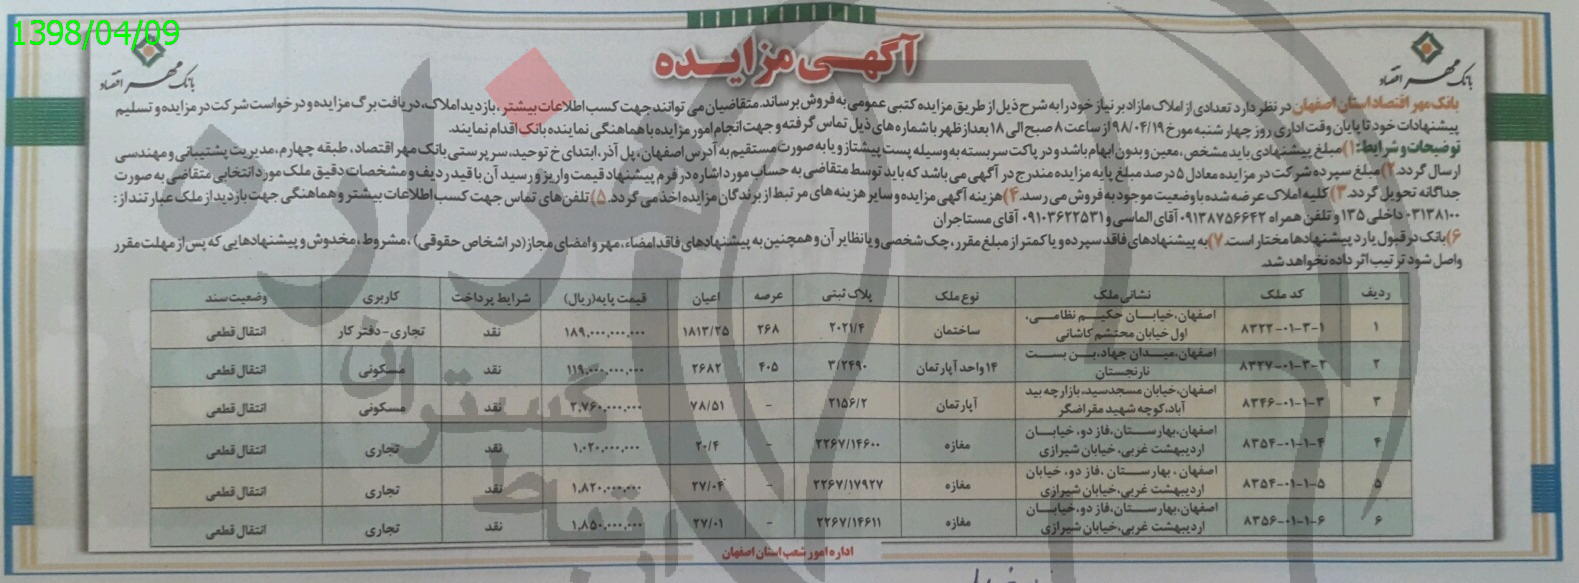 1398/04/09
آگهی مزایده
بانک مهر اقتصاد
بانک مهر اقتصاد
بانک مهر اقتصاد استان اصفهان در نظر دارد تعدادی از املاک مازاد بر نیاز خود را به شرح ذیل از طریق مزایده کتبی عمومی به فروش برساند. متقاضیان می توانند جهت کسب اطلاعات بیشتر، بازدید املاک، دریافت برگ مزایده و درخواست شرکت در مزایده و تسلیم
پیشنهادات خود تا پایان وقت اداری روز چهارشنبه مورخ ۹۸/۰۴/۱۹ از ساعت ۸ صبح الی ۱۸ بعد از ظهر با شماره های ذیل تماس گرفته و جهت انجام امور مزایده با هماهنگی نماینده بانک اقدام نمایند.
توضیحات و شرایط: ۱) مبلغ پیشنهادی باید مشخص، معین و بدون ابهام باشد و در پاکت سربسته به وسیله پست پیشتاز و یا به صورت مستقیم به آدرس اصفهان، پل آذر، ابتدای خ توحید، سرپرستی بانک مهر اقتصاد، طبقه چهارم، مدیریت پشتیبانی و مهندسی
ارسال گردد. ۲) مبلغ سپرده شرکت در مزایده معادل ۵ درصد مبلغ پایه مزایده مندرج در آگهی می باشد که باید توسط متقاضی به حساب مورد اشاره در فرم پیشنهاد قیمت واریز و رسید آن با قید ردیف و مشخصات دقیق ملک مورد انتخابی متقاضی به صورت
جداگانه تحویل گردد. ۳) کلیه املاک عرضه شده با وضعیت موجود به فروش می رسد. ۴) هزینه آگهی مزایده و سایر هزینه های مرتبط از برندگان مزایده اخذ می گردد. ۵) تلفن های تماس جهت کسب اطلاعات بیشتر و هماهنگی جهت بازدید از ملک عبارتند از:
۰۳۱۳۸۱۰۰ داخلی ۱۳۵ و تلفن همراه ۰۹۱۳۸۷۵۶۶۴۲ آقای الماسی و ۰۹۱۰۳۶۲۲۵۳۱ آقای مستاجران
۶) بانک در قبول یا رد پیشنهادها مختار است. ۷) به پیشنهادهای فاقد سپرده و یا کمتر از مبلغ مقرر، چک شخصی و یا نظایر آن و همچنین به پیشنهادهای فاقد امضاء، مهر و امضای مجاز (در اشخاص حقوقی)، مشروط، مخدوش و پیشنهادهایی که پس از مهلت مقرر
واصل شود ترتیب اثر داده نخواهد شد.
ردیف کد ملک نشانی ملک نوع ملک پلاک ثبتی عرصه اعیان قیمت پایه(ریال) شرایط پرداخت کاربری وضعیت سند
۱ ۸۳۲۲-۰۱-۳-۱ اصفهان، خیابان حکیم نظامی، اول خیابان محتشم کاشانی ساختمان ۲۰۲۱/۴ ۲۶۸ ۱۸۱۳/۲۵ ۱۸۹,۰۰۰,۰۰۰,۰۰۰ نقد تجاری-دفتر کار انتقال قطعی
۲ ۸۳۲۷-۰۱-۳-۲ اصفهان، میدان جهاد، بن بست نارنجستان ۱۴ واحد آپارتمان ۳/۲۴۹۰ ۴۰۵ ۲۶۸۲ ۱۱۹,۰۰۰,۰۰۰,۰۰۰ نقد مسکونی انتقال قطعی
۳ ۸۳۴۶-۰۱-۱-۳ اصفهان، خیابان مسجد سید، بازارچه بید آباد، کوچه شهید مقراضگر آپارتمان ۲۱۵۶/۲ - ۷۸/۵۱ ۲,۷۶۰,۰۰۰,۰۰۰ نقد مسکونی انتقال قطعی
۴ ۸۳۵۴-۰۱-۱-۴ اصفهان، بهارستان، فاز دو، خیابان اردیبهشت غربی، خیابان شیرازی مغازه ۲۲۶۷/۱۴۶۰۰ - ۲۰/۴ ۱,۰۲۰,۰۰۰,۰۰۰ نقد تجاری انتقال قطعی
۵ ۸۳۵۴-۰۱-۱-۵ اصفهان، بهارستان، فاز دو، خیابان اردیبهشت غربی، خیابان شیرازی مغازه ۲۲۶۷/۱۷۹۲۷ - ۲۷/۰۴ ۱,۸۲۰,۰۰۰,۰۰۰ نقد تجاری انتقال قطعی
۶ ۸۳۵۶-۰۱-۱-۶ اصفهان، بهارستان، فاز دو، خیابان اردیبهشت غربی، خیابان شیرازی مغازه ۲۲۶۷/۱۴۶۱۱ - ۲۷/۰۱ ۱,۸۵۰,۰۰۰,۰۰۰ نقد تجاری انتقال قطعی
اداره امور شعب استان اصفهان